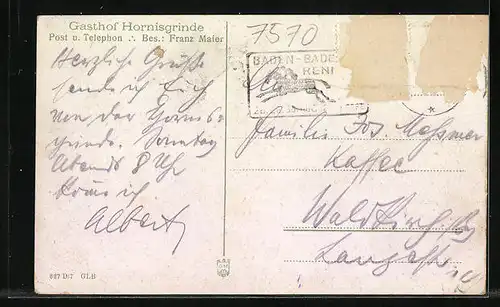 Gasthof Hornisgrinde
Post u. Telephon ∴ Bes.: Franz Maier
Herzliche Grüße
sende ich Euch
von der Hornis-
grinde. Sonntag
Abend 8 Uhr
komme ich
Albert
627 D/7 GLB
7570
BADEN-BADE
RENN
Familie Jos. Messmer
Kaffee
Waldkirch
Langestr.